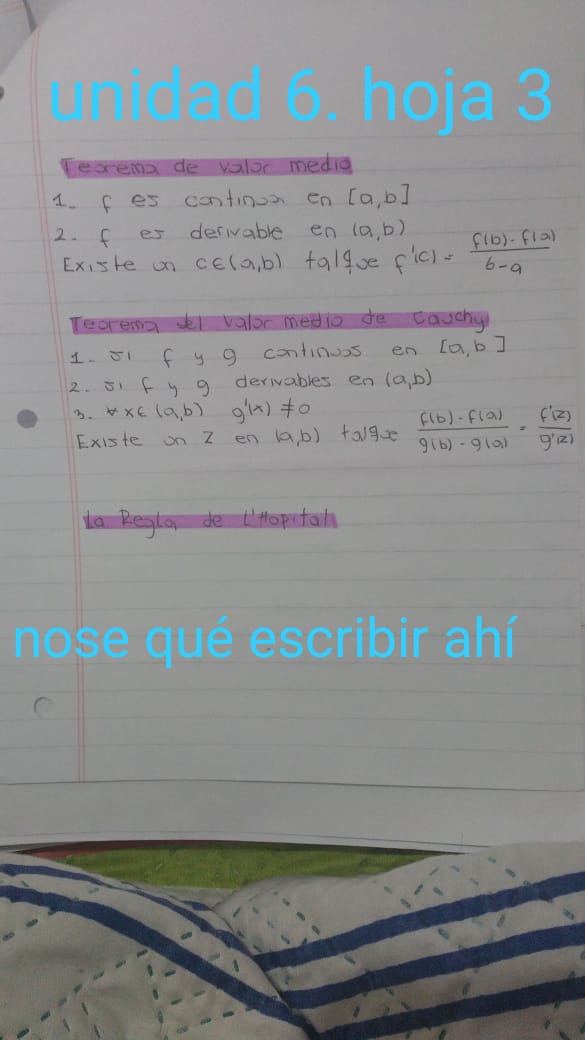 unidad 6. hoja 3
Teorema de valor medio
1. f es continua en [a,b]
2. f es derivable en (a,b)
Existe un c∈(a,b) talque f'(c) = f(b) - f(a) / b - a
Teorema del valor medio de Cauchy
1. si f y g continuas en [a,b]
2. si f y g derivables en (a,b)
3. ∀x∈(a,b) g'(x) ≠ 0
Existe un z en (a,b) talque f(b) - f(a) / g(b) - g(a) = f'(z) / g'(z)
La Regla de L'Hopital
nose qué escribir ahí